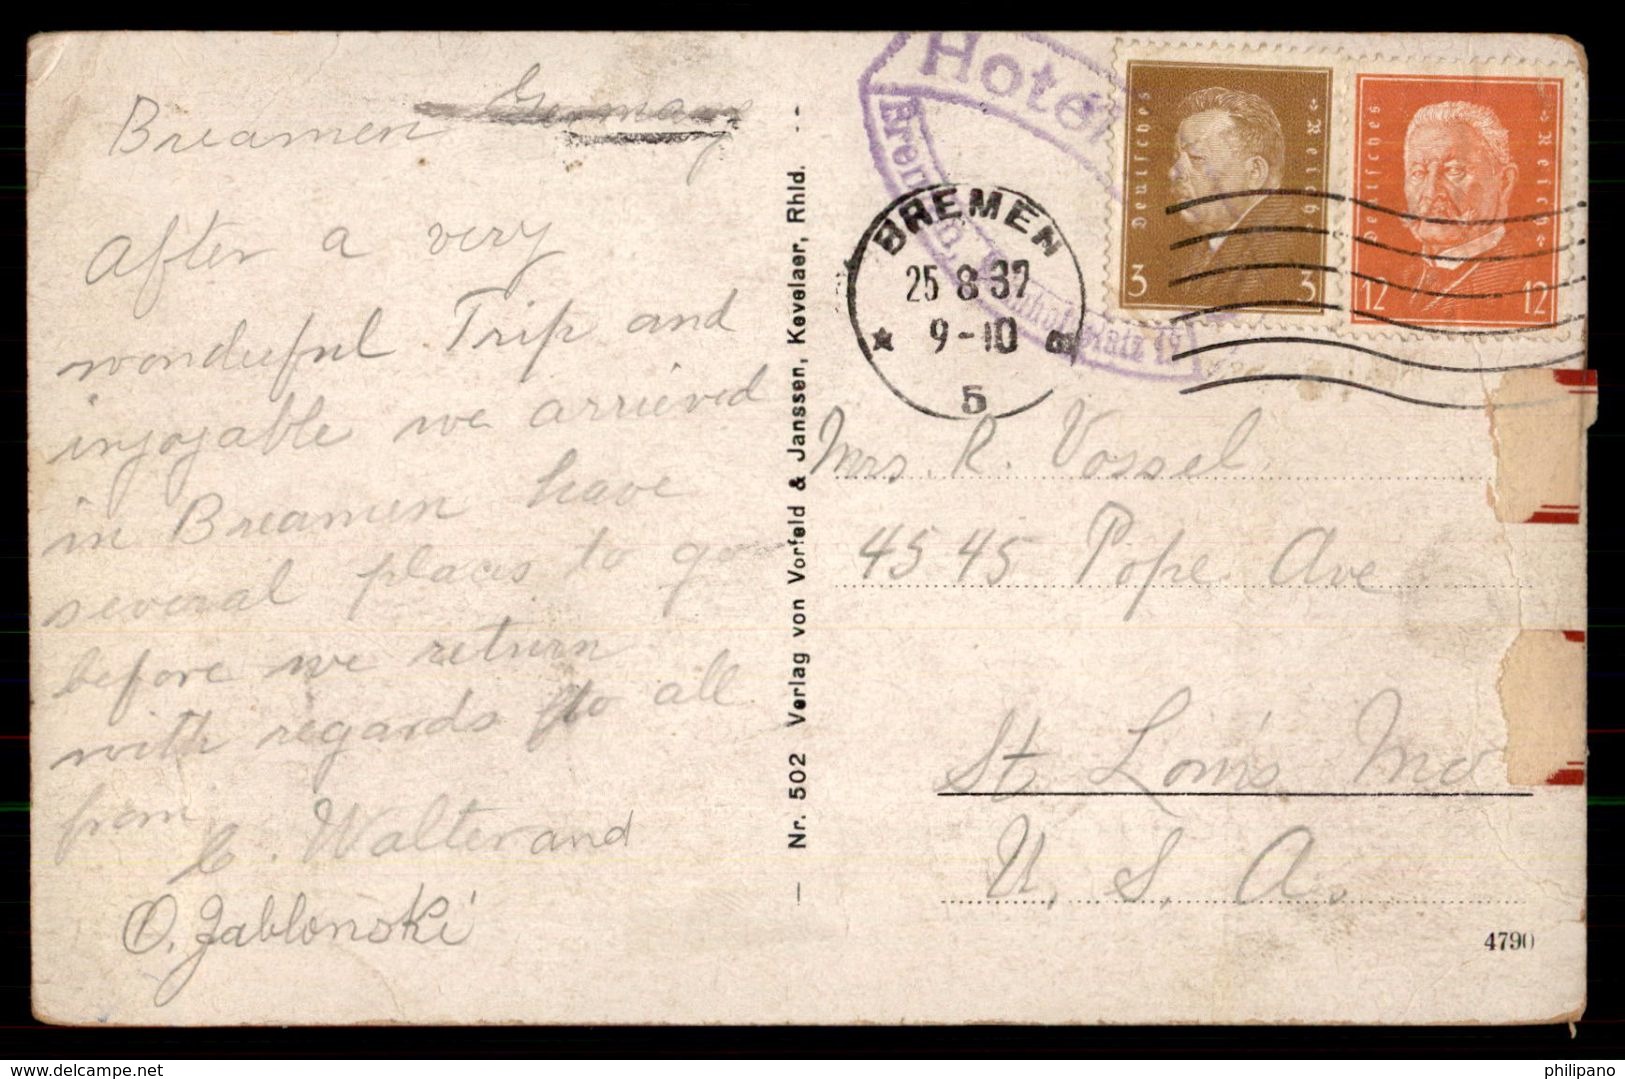 Breamen Germany
after a very
wonderful Trip and
injoyable we arrieved
in Breamen have
several places to go
before we return
with regards to all
from
C. Walter and
O. Jablonski
Nr. 502 Verlag von Vorfeld & Janssen, Kevelaer, Rhld.
Hotel
BREMEN
25 8 32
9-10
5
Deutsches Reich
3 3
Deutsches Reich
12 12
Mrs. R. Vossel.
4545 Pope Ave
St. Louis Mo
U. S. A.
4790
www.delcampe.net
philipano